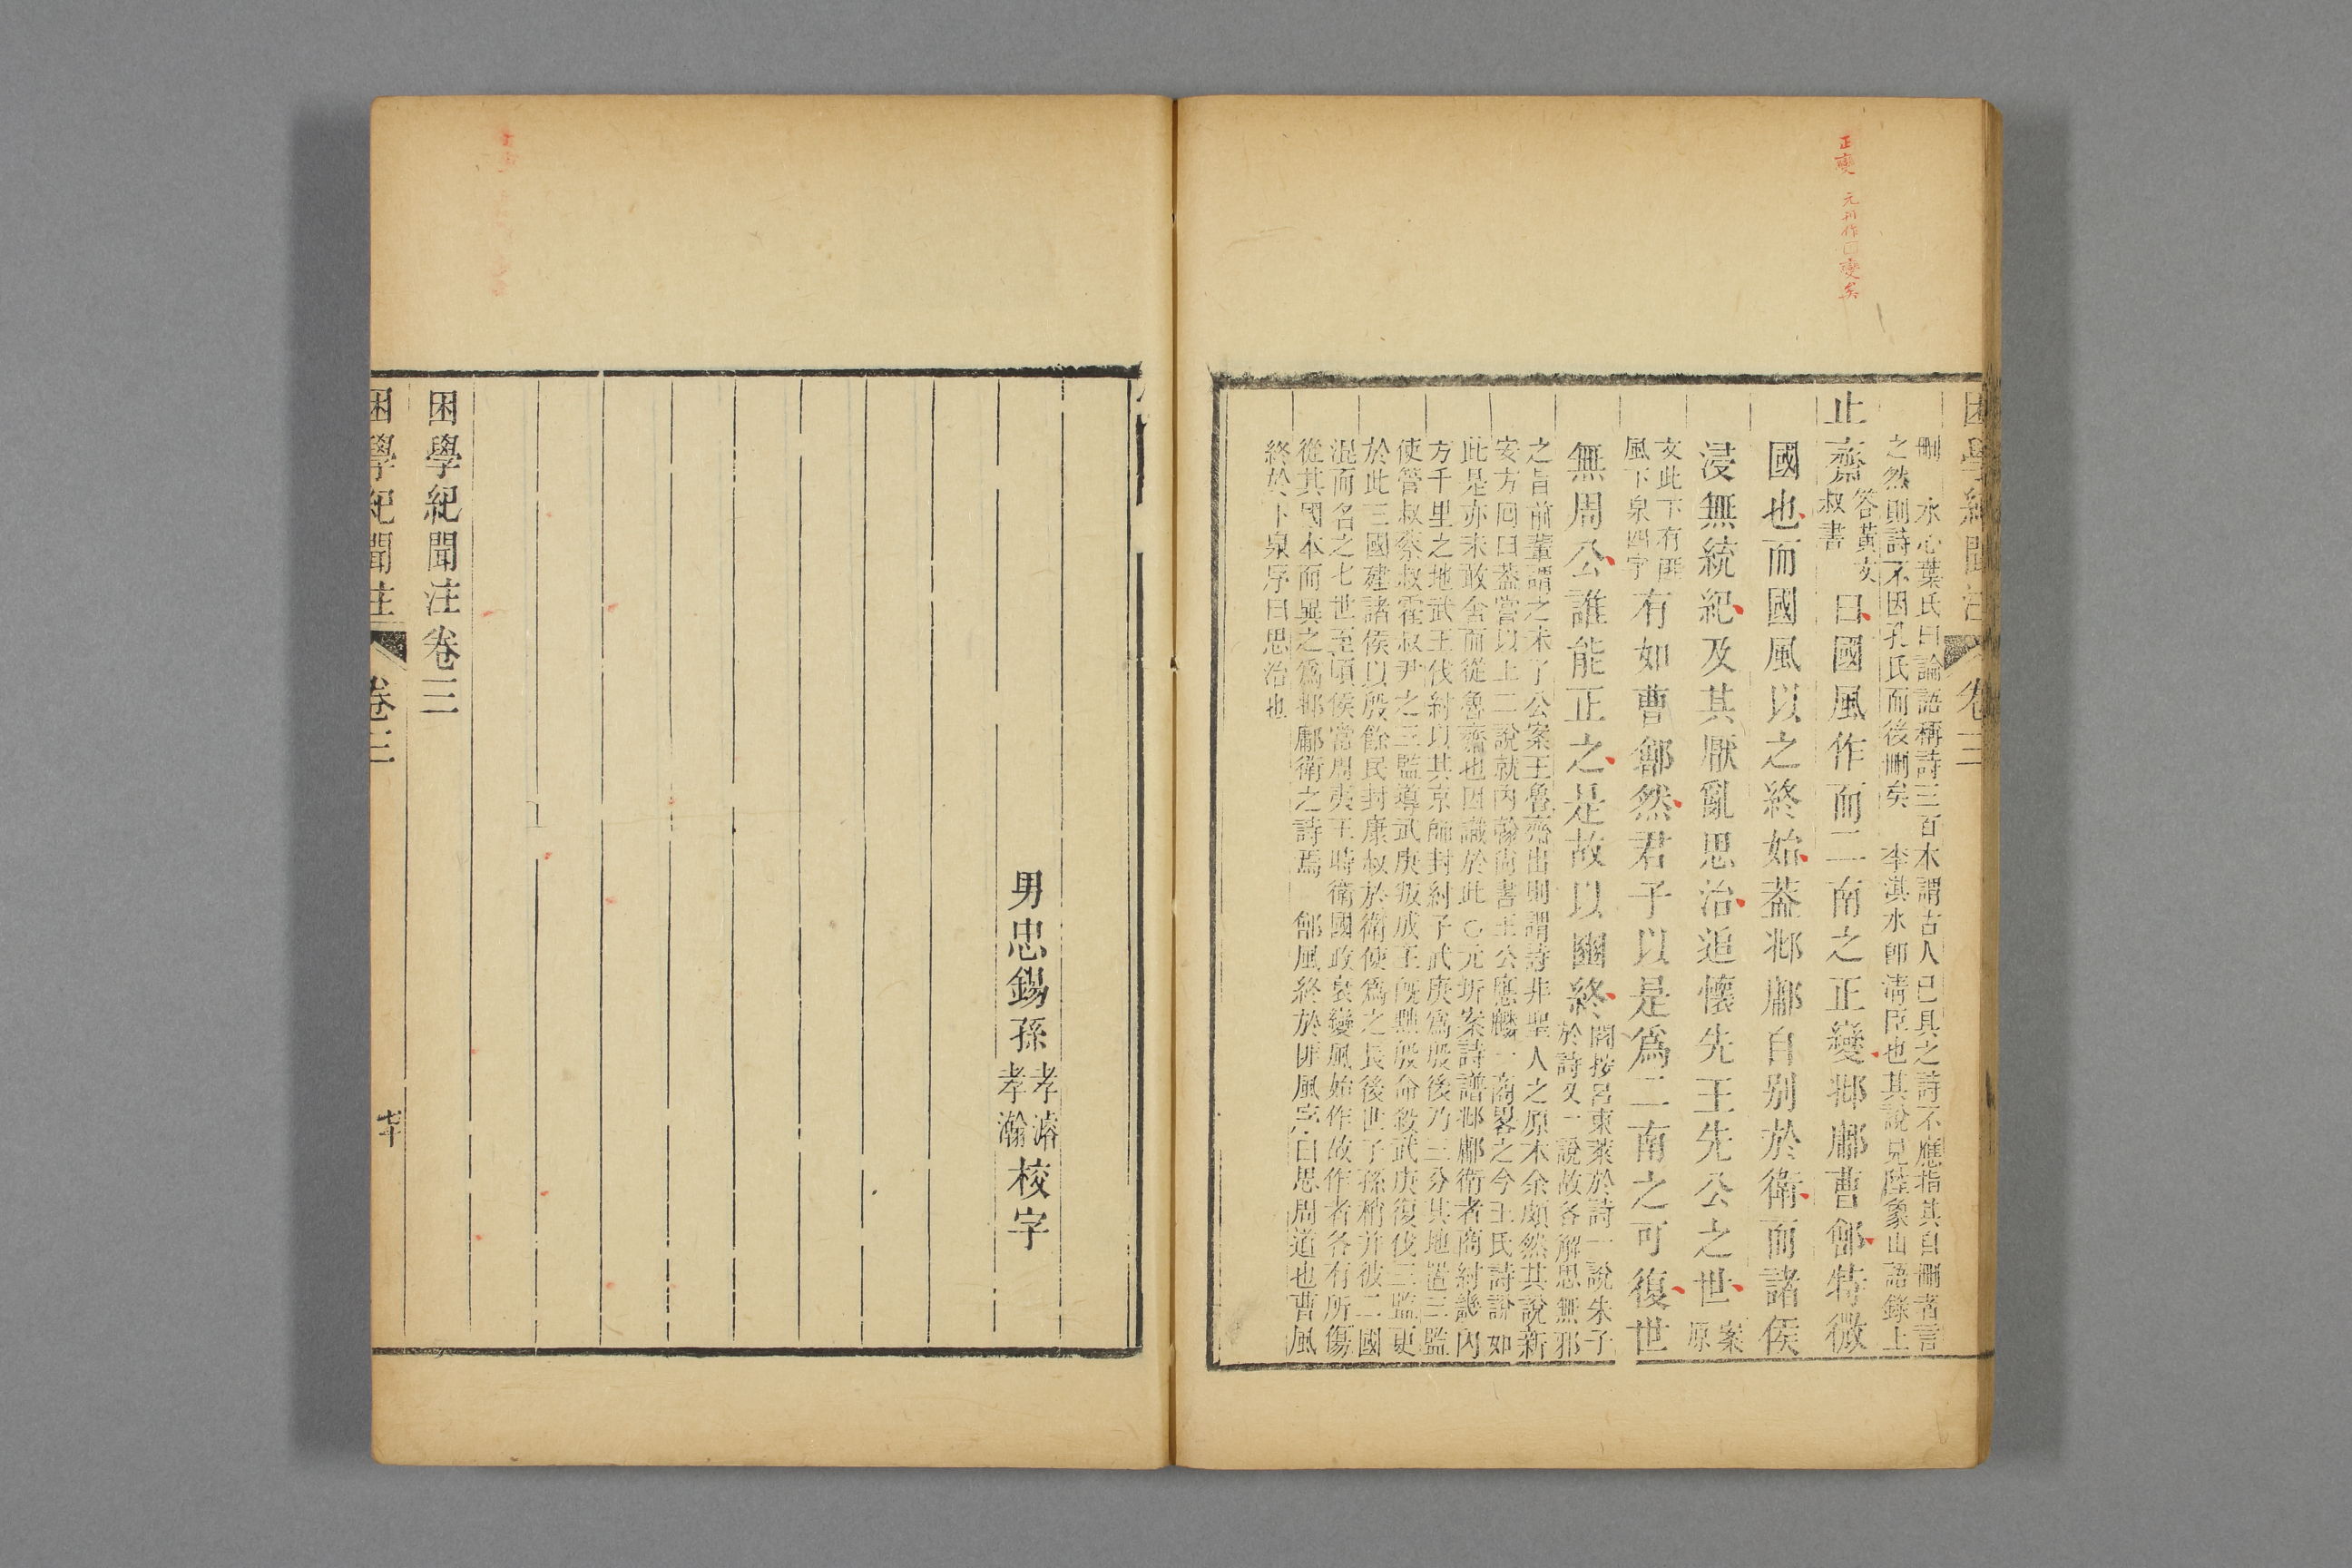 正變 元刊作 變矣
困學紀聞注 卷三
刪 水心葉氏曰論語稱詩三百本謂古人已具之詩不應指其自刪者言
之然則詩不因孔氏而後刪矣 李淇水卽清臣也其說見陸象山語錄上
止齋
答黃文
叔書
曰國風作而二南之正變邶鄘曹鄶特微
國也而國風以之終始葢邶鄘自別於衛而諸侯
浸無統紀及其厭亂思治追懷先王先公之世
案
原
文此下有匪
風下泉四字
有如曹鄶然君子以是爲二南之可復世
無周公誰能正之是故以豳終
閻按呂東萊於詩一說朱子
於詩又一說故各解思無邪
之旨前輩謂之未了公案王魯齋出則謂詩非聖人之原本余頗然其說新
安方回曰葢嘗以上二說就內翰尚書王公應麟一商畧之今王氏詩說如
此是亦未敢舍而從魯齋也因識於此○元圻案詩譜邶鄘衛者商紂畿內
方千里之地武王伐紂以其京師封紂子武庚爲殷後乃三分其地置三監
使管叔蔡叔霍叔尹之三監導武庚叛成王旣黜殷命殺武庚復伐三監更
於此三國建諸侯以殷餘民封康叔於衛使爲之長後世子孫稍并彼二國
混而名之七世至頃侯當周夷王時衛國政衰變風始作故作者各有所傷
從其國本而異之爲邶鄘衛之詩焉 鄶風終於匪風序曰思周道也曹風
終於下泉序曰思治也
男忠錫孫
孝濬
孝瀚
校字
困學紀聞注卷三
困學紀聞注 卷三 七十